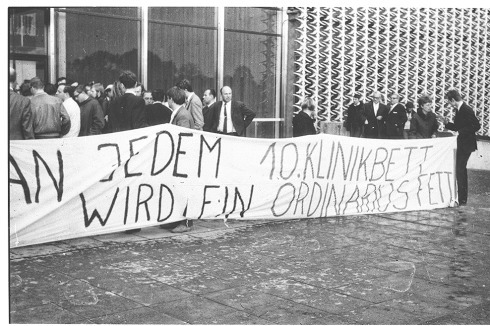 AN JEDEM 10. KLINIKBETT
WIRD EIN ORDINARIUS FETT